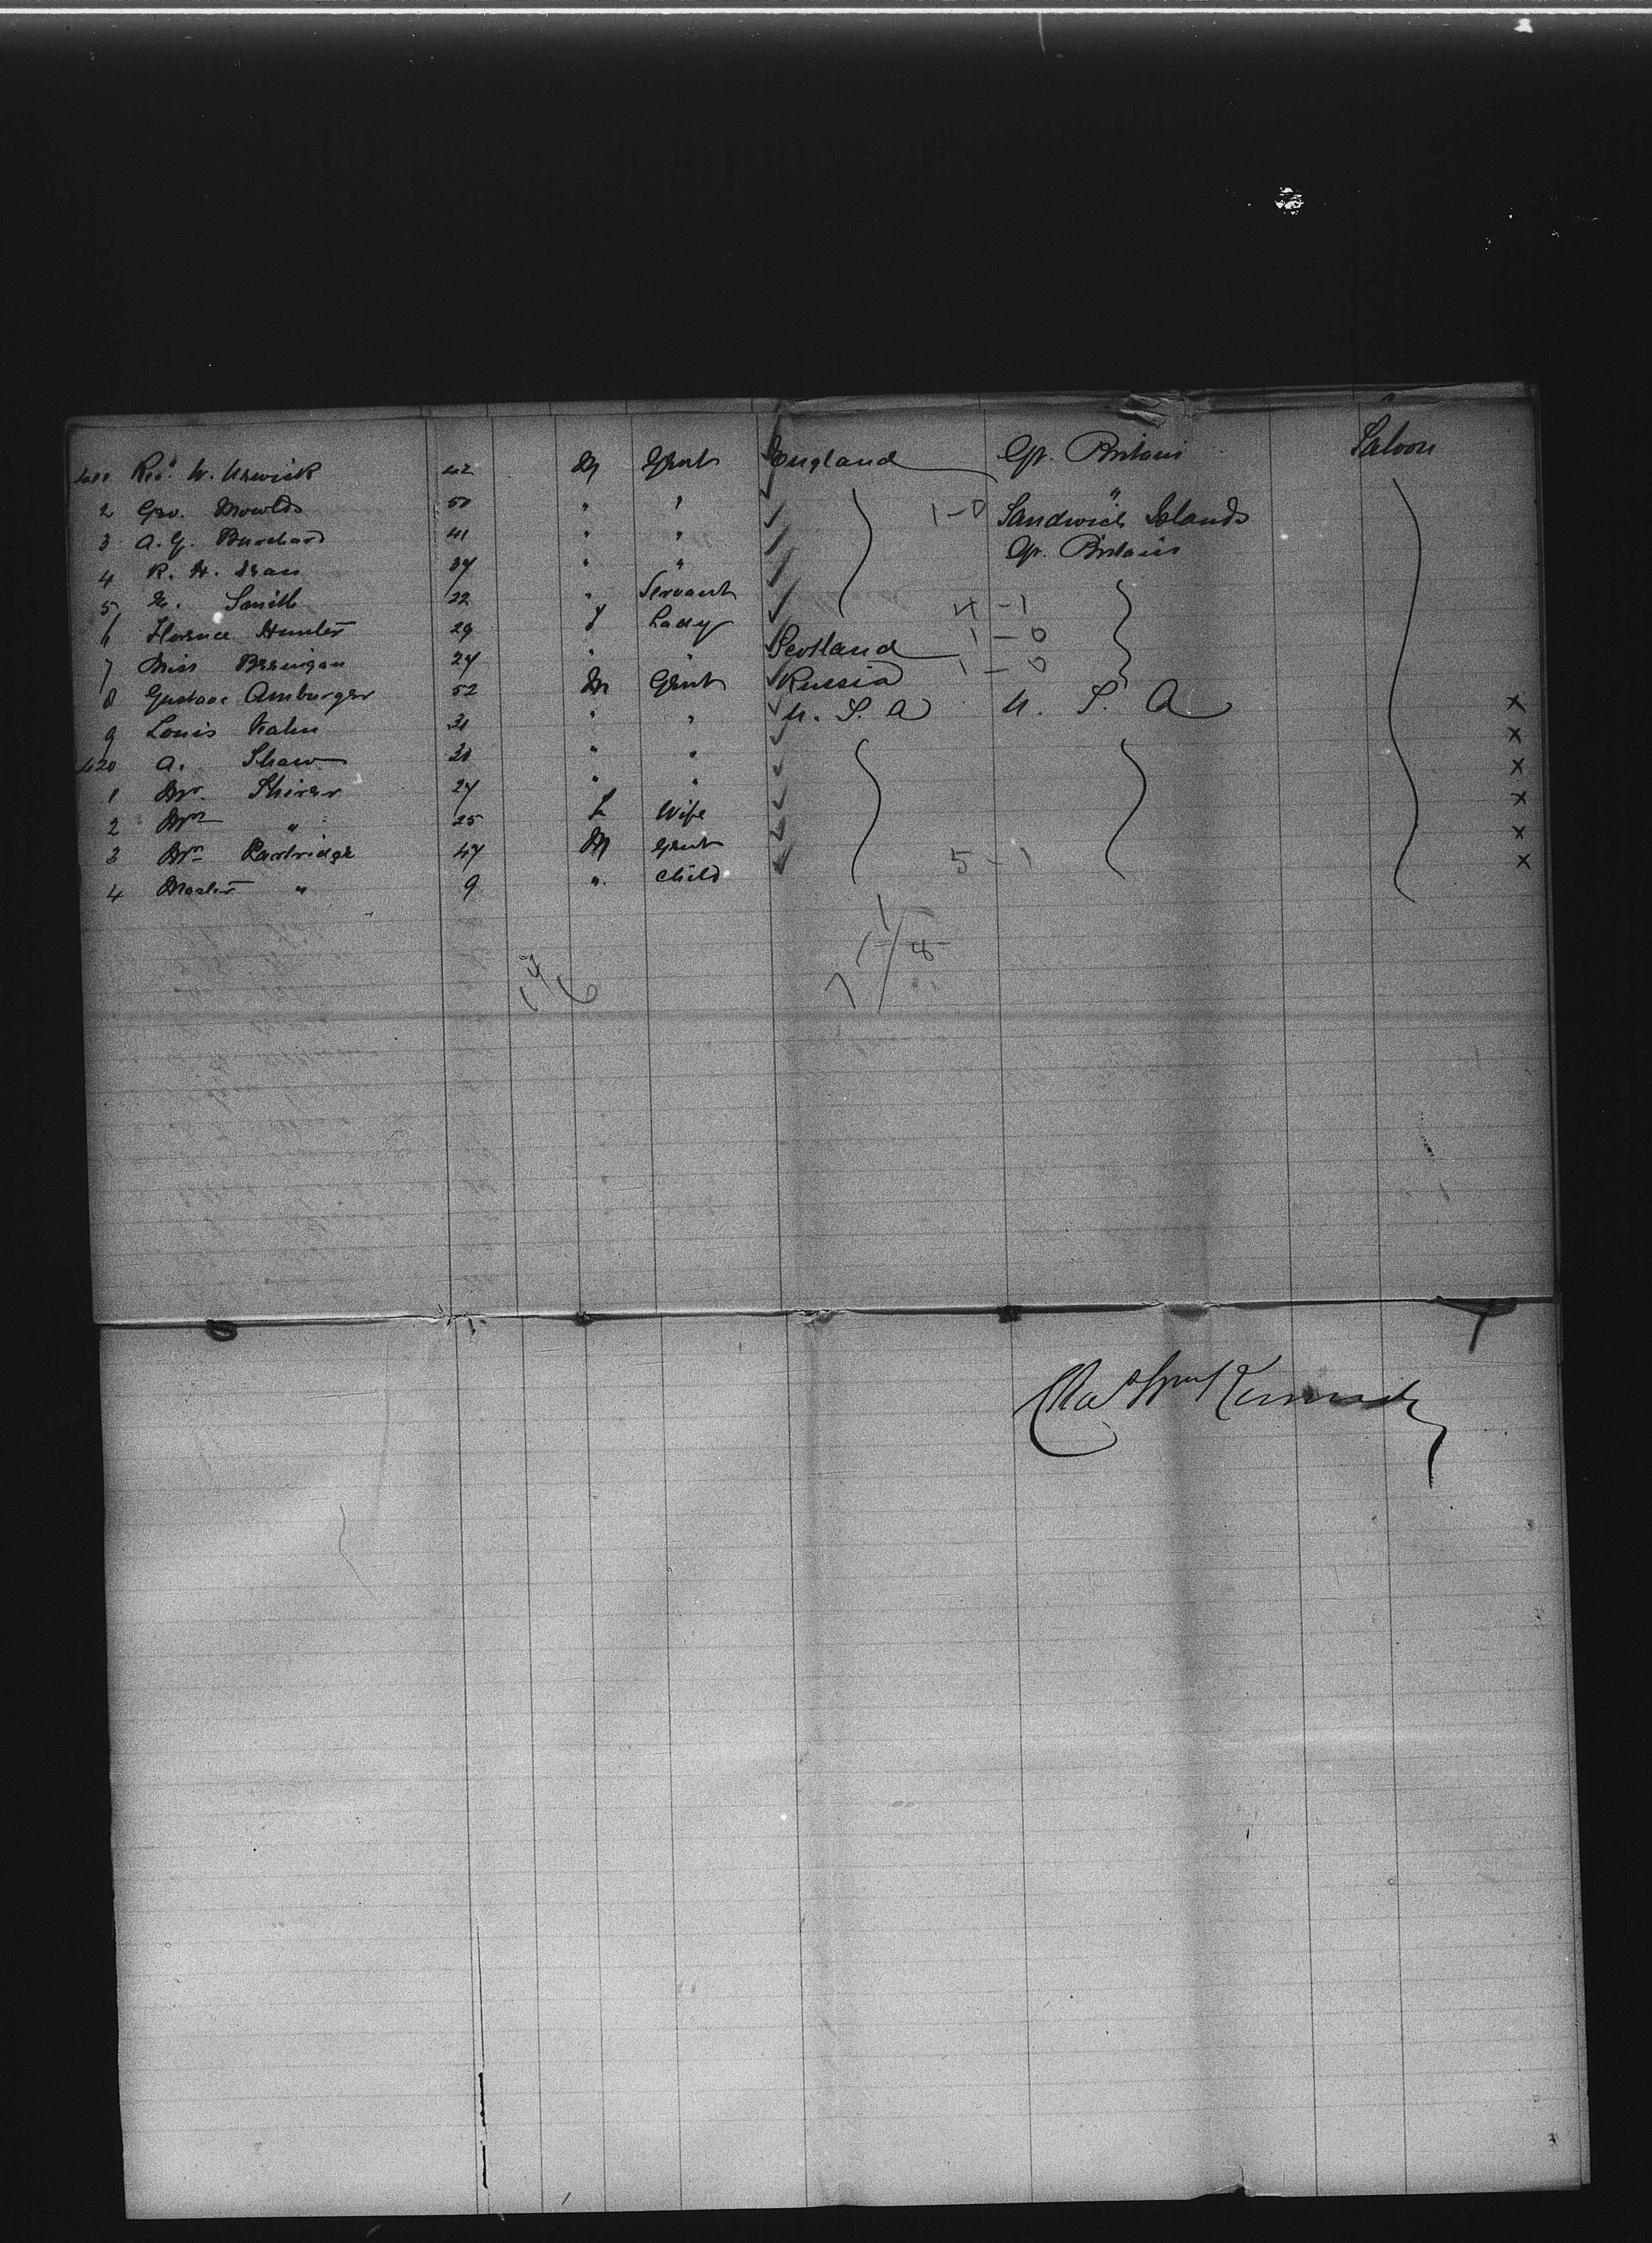 Revd W. Urwick 42 M Gent England Gt. Britain Saloon
2 Geo. Moulds 50 " " "
3 A. G. Burchard 41 " " 1-0 Sandwich Islands
4 R. H. 37 " " Gt. Britain
5 Smith 22 " Servant
6 Florence Hunter 29 f Lady 4-1
7 Miss 24 " " Scotland 1-0
8 Gustave Amburger 52 M Gent Russia 1-0
9 Louis Kahn 31 " " U. S. A U. S. A x
420 A. Shaw 28 " " x
1 Mr. Shirer 27 " " x
2 Mrs " 25 f Wife x
3 Mr Partridge 47 M Gent x
4 Master " 9 " child 5-1 x
Chas Wm Kennedy